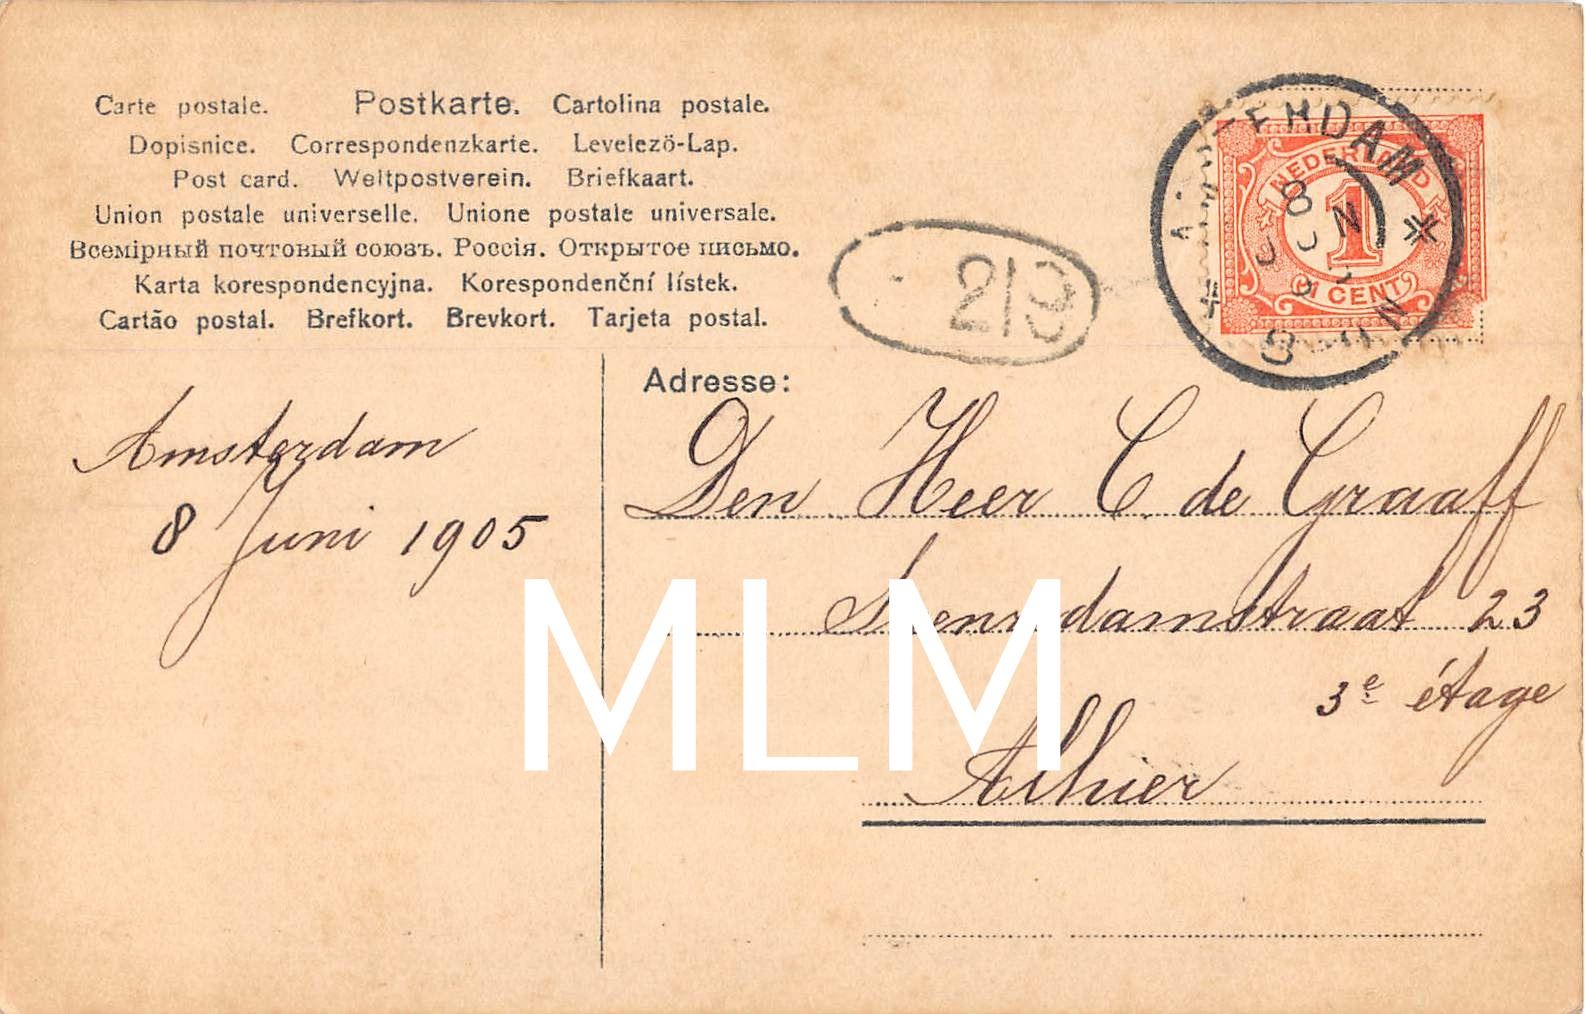 Carte postale. Postkarte. Cartolina postale.
Dopisnice. Correspondenzkarte. Levelező-Lap.
Post card. Weltpostverein. Briefkaart.
Union postale universelle. Unione postale universale.
Всемірный почтовый союзъ. Россія. Открытое письмо.
Karta korespondencyjna. Korespondenční lístek.
Cartão postal. Brefkort. Brevkort. Tarjeta postal.
2/3
AMSTERDAM
NEDERLAND
1
1 CENT
Amsterdam
8 Juni 1905
Adresse:
Den Heer C. de Graaff
Saenredamstraat 23
3e étage
Alhier
MLM